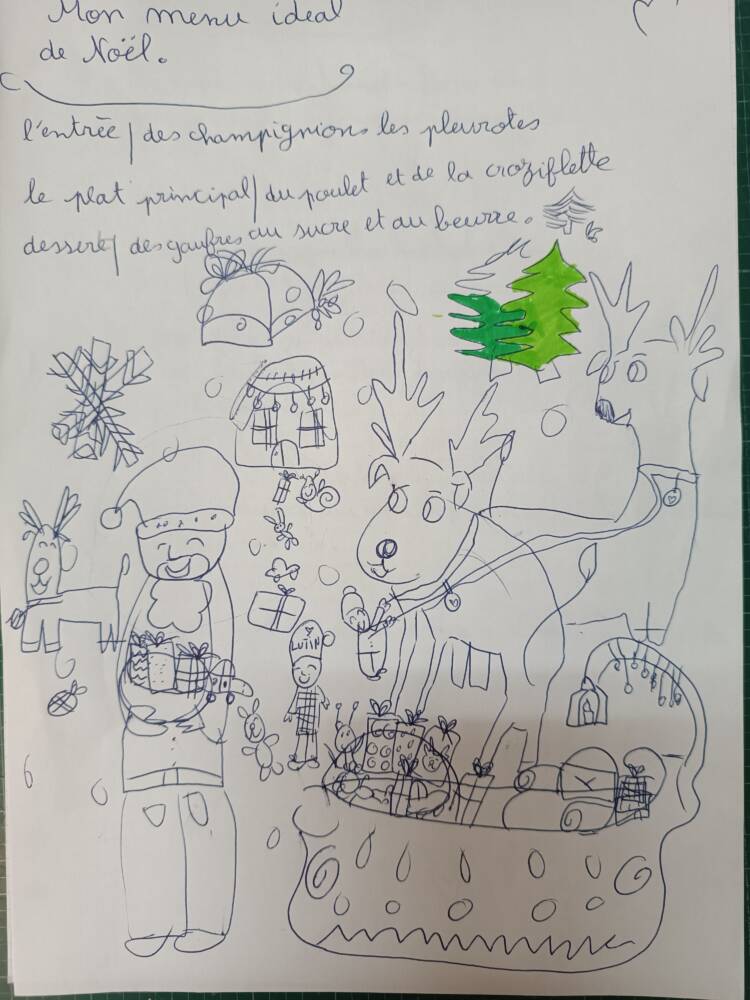 Mon menu idéal
de Noël.
l'entrée / des champignions les pleurotes
le plat principal / du poulet et de la croziflette
dessert / des gaufres au sucre et au beurre.
LUTIN